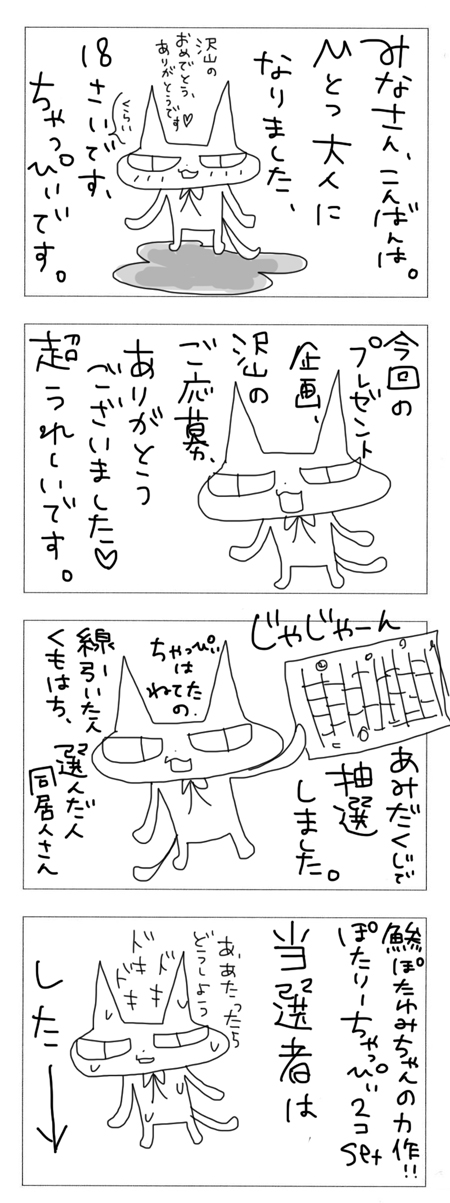 みなさん、こんばんは。
ひとつ大人に
なりました、
沢山の
おめでとう、
ありがとうです♡
18さいです、
くらい
ちゃっぴぃです。
今回の
プレゼント
企画、
沢山の
ご応募、
ありがとう
ございました♡
超うれしいです。
じゃじゃーん
あみだくじで
抽選
しました。
ちゃっぴぃ
は
ねてた
の.
線引いた人
くもはち、
選んだ人
同居人さん
鯵ぽたゆみちゃんの力作!!
ぽたりーちゃっぴぃ2コset
当選者は
あ、あたったら
どうしよう
ドキ
ドキ
ドキ
した